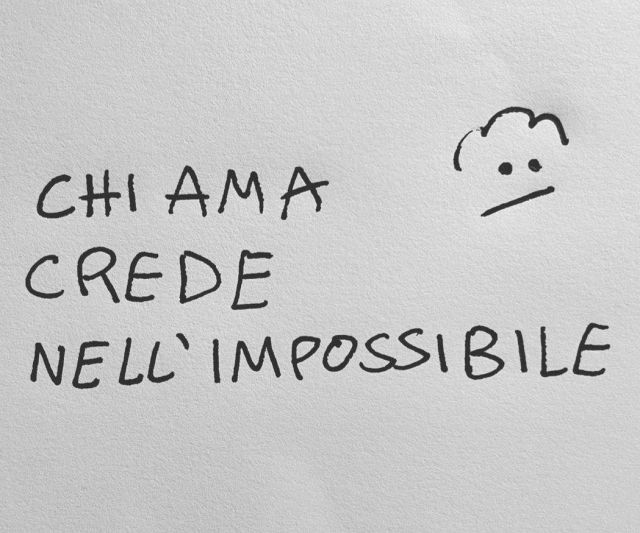 CHI AMA
CREDE
NELL'IMPOSSIBILE